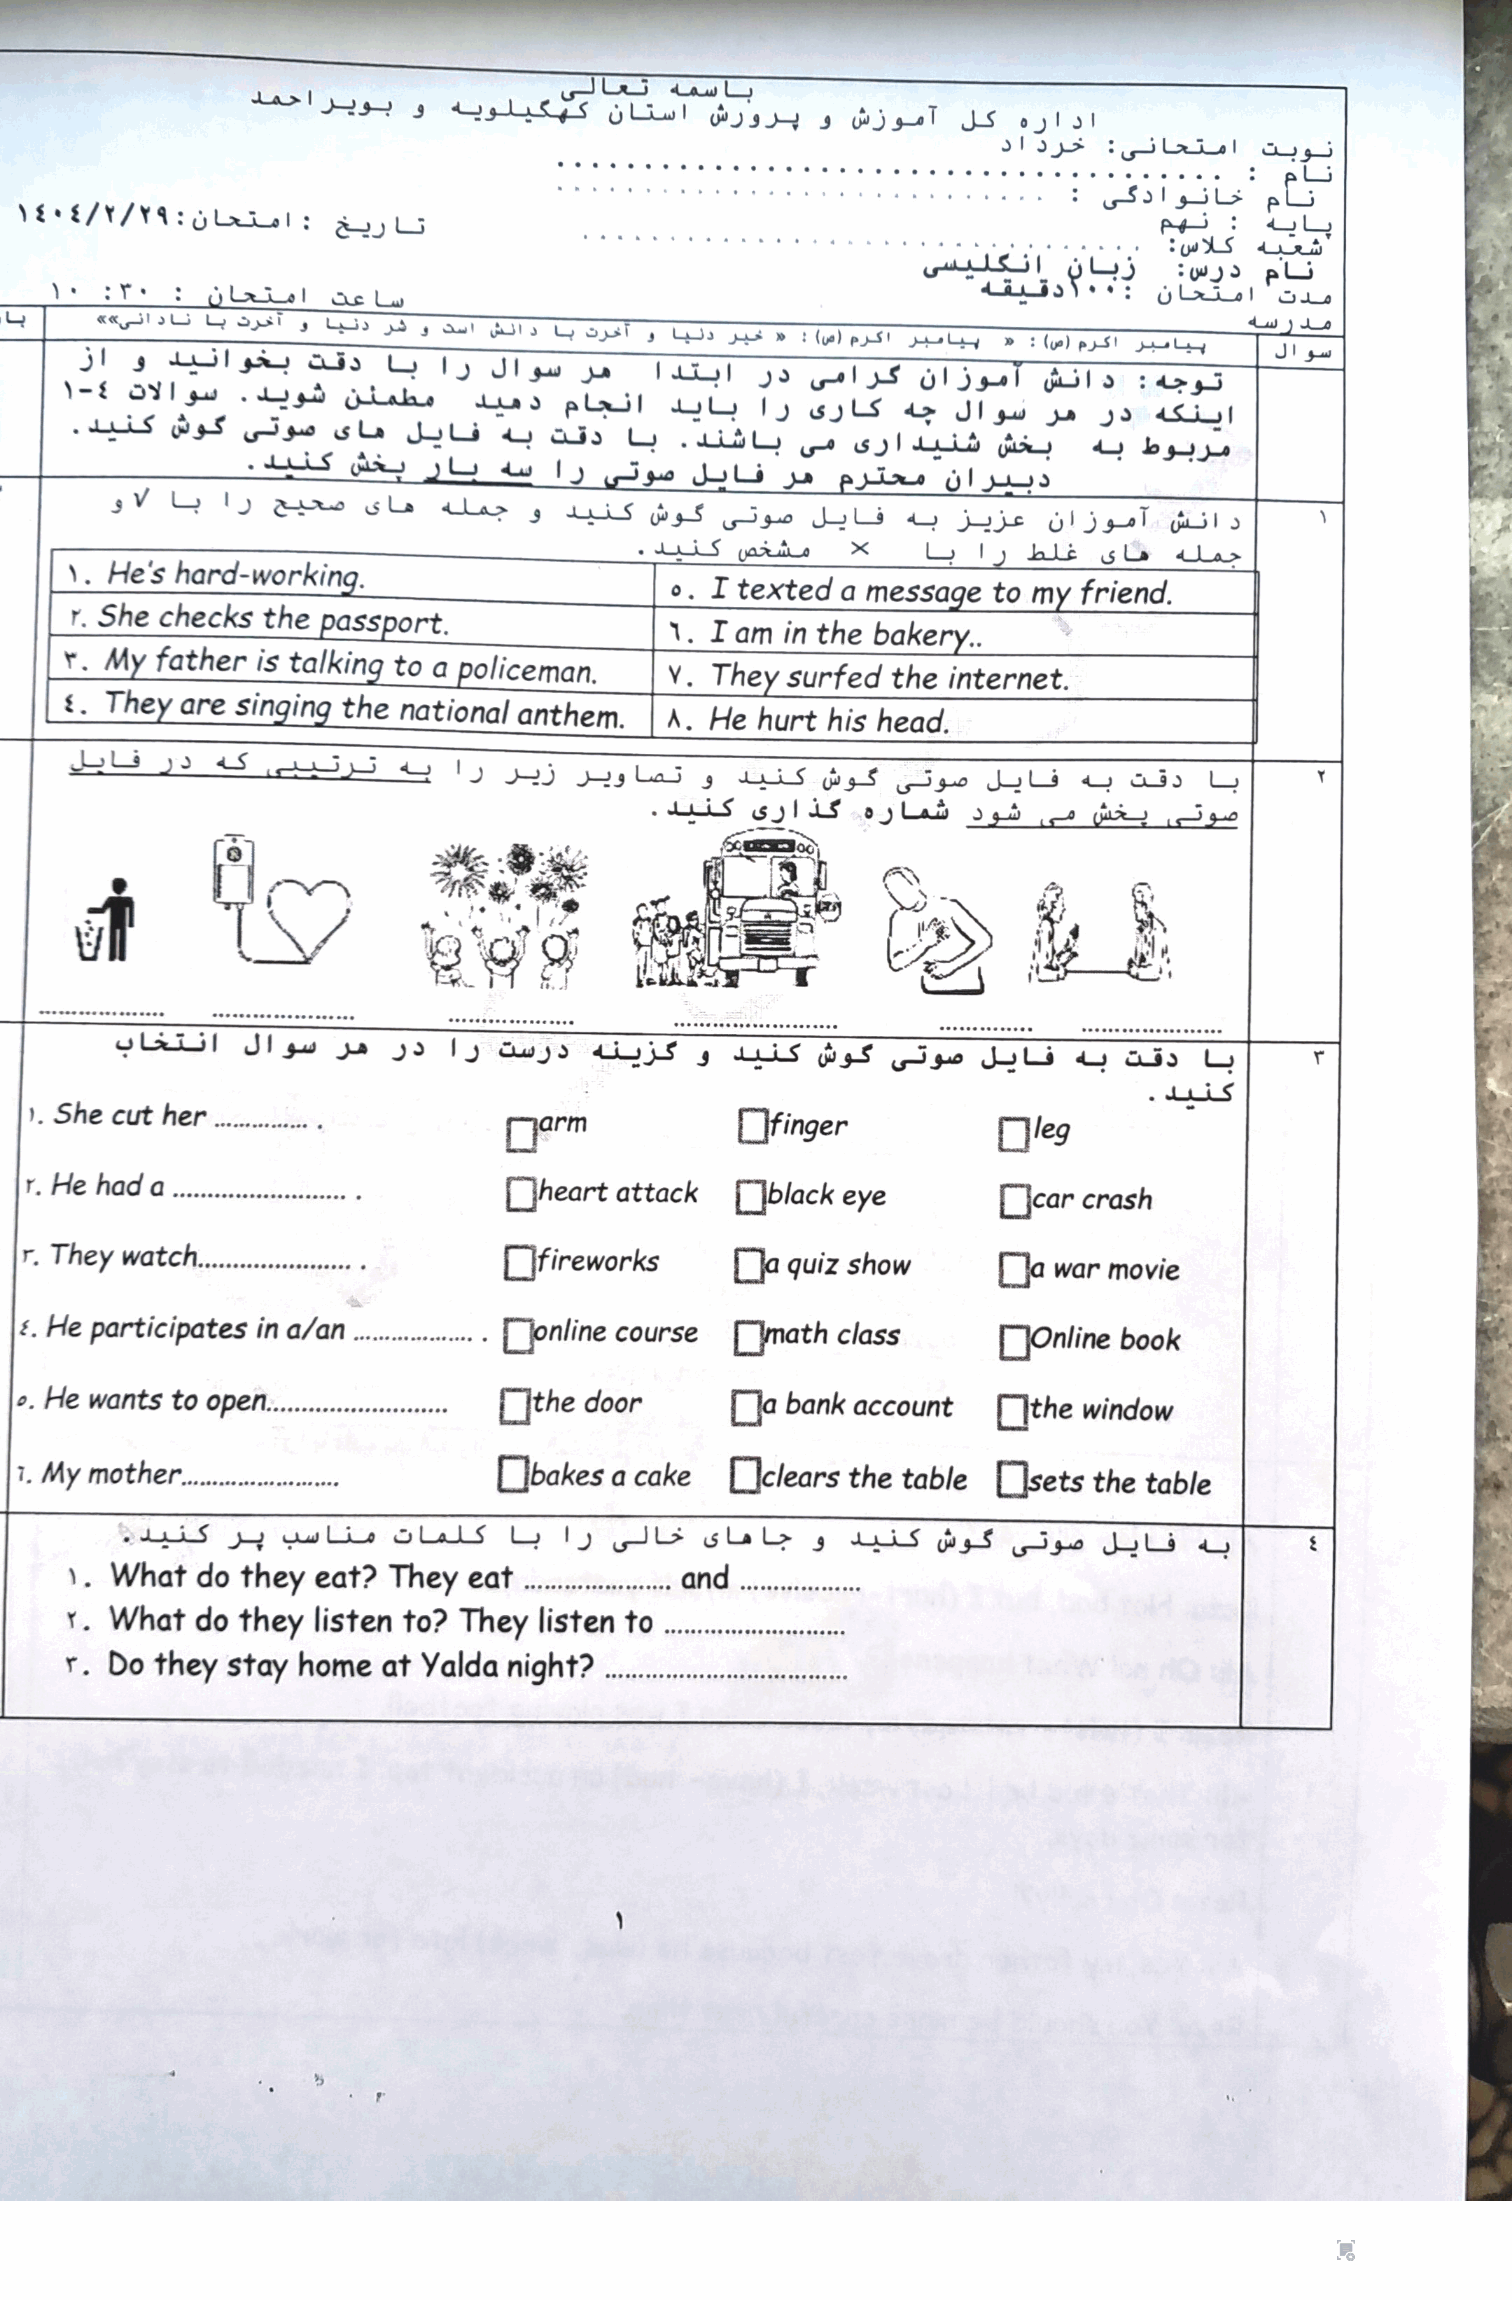 باسمه تعالی
اداره کل آموزش و پرورش استان کهگیلویه و بویراحمد
نوبت امتحانی: خرداد
نام : ......................................
نام خانوادگی : ............................
پایه : نهم
تاریخ :امتحان:١٤٠٤/٢/٢٩
شعبه کلاس: ................................
نام درس: زبان انگلیسی
مدت امتحان :١٠٠دقیقه
ساعت امتحان : ٣٠: ١٠
مدرسه
سوال
پیامبر اکرم (ص): « پیامبر اکرم (ص): « خیر دنیا و آخرت با دانش است و شر دنیا و آخرت با نادانی»»
توجه: دانش آموزان گرامی در ابتدا هر سوال را با دقت بخوانید و از
اینکه در هر سوال چه کاری را باید انجام دهید مطمئن شوید. سوالات ٤-١
مربوط به بخش شنیداری می باشند. با دقت به فایل های صوتی گوش کنید.
دبیران محترم هر فایل صوتی را سه بار پخش کنید.
١
دانش آموزان عزیز به فایل صوتی گوش کنید و جمله های صحیح را با √ و
جمله های غلط را با × مشخص کنید.
١. He's hard-working.
٥. I texted a message to my friend.
٢. She checks the passport.
٦. I am in the bakery..
٣. My father is talking to a policeman.
٧. They surfed the internet.
٤. They are singing the national anthem.
٨. He hurt his head.
٢
با دقت به فایل صوتی گوش کنید و تصاویر زیر را به ترتیبی که در فایل
صوتی پخش می شود شماره گذاری کنید.
٣
با دقت به فایل صوتی گوش کنید و گزینه درست را در هر سوال انتخاب
کنید.
١. She cut her .............. . arm finger leg
٢. He had a .......................... . heart attack black eye car crash
٣. They watch....................... . fireworks a quiz show a war movie
٤. He participates in a/an .................. . online course math class Online book
٥. He wants to open......................... the door a bank account the window
٦. My mother...................... bakes a cake clears the table sets the table
٤
به فایل صوتی گوش کنید و جاهای خالی را با کلمات مناسب پر کنید.
١. What do they eat? They eat .................... and ................
٢. What do they listen to? They listen to .........................
٣. Do they stay home at Yalda night? .................................
١